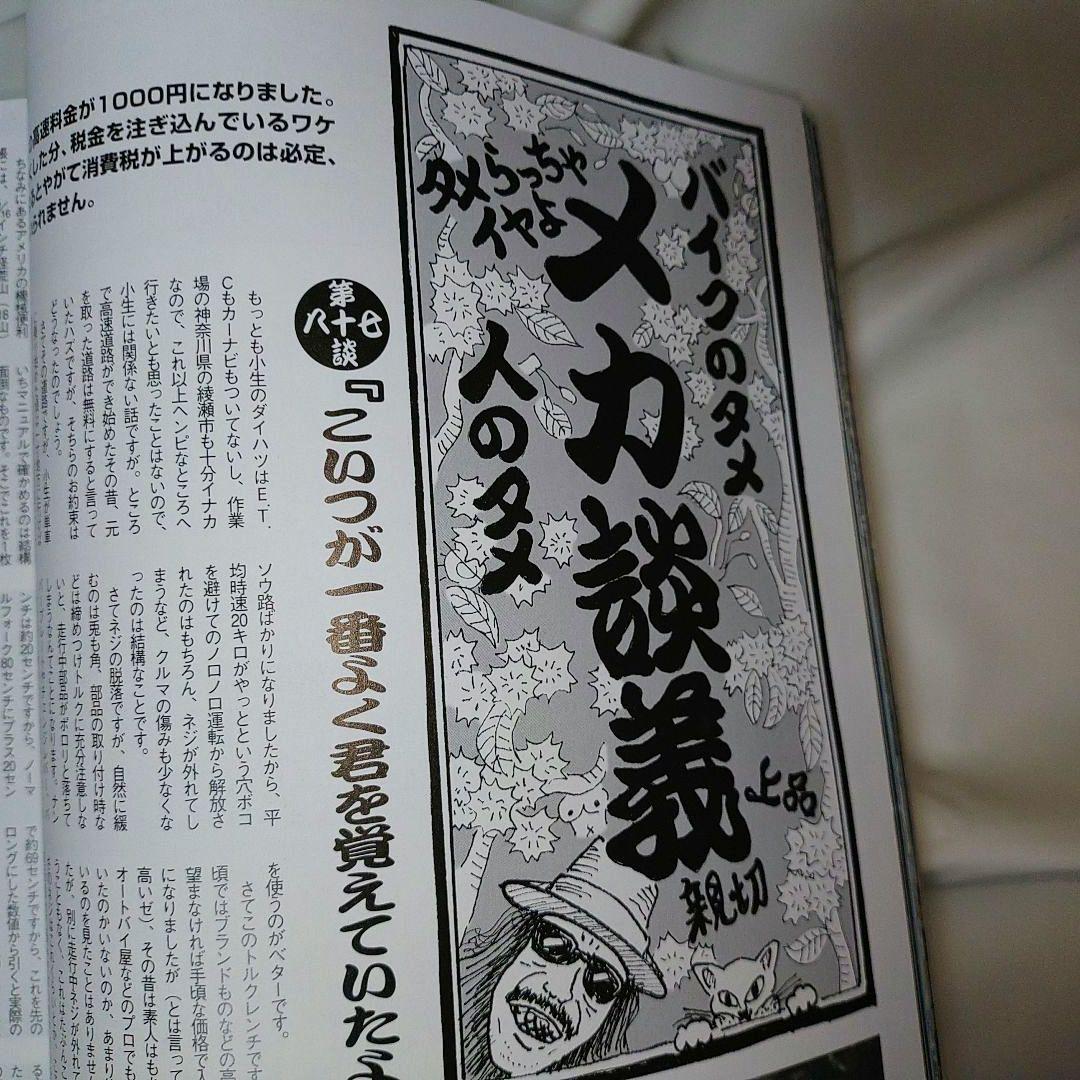 バイクのタメ
メカ談義
人のタメ
タメらっちゃ
イヤよ
上品
親切
高速料金が1000円になりました。
した分、税金を注ぎ込んでいるワケ
とやがて消費税が上がるのは必定、
られません。
第
八十七
談
『こいつが一番よく君を覚えていたよ
もっとも小生のダイハツはET.
Cもカーナビもついてないし、作業
場の神奈川県の綾瀬市も十分イナカ
なので、これ以上ヘンピなところへ
行きたいとも思ったことはないので、
小生には関係ない話ですが。ところ
で高速道路ができ始めたその昔、元
を取った道路は無料にすると言って
いたハズですが、そちらのお約束は
どうなったのでしょう。
ソウ路ばかりになりましたから、平
均時速20キロがやっとという穴ボコ
を避けてのノロノロ運転から解放さ
れたのはもちろん、ネジが外れてし
まうなど、クルマの傷みも少なくな
ったのは結構なことです。
さてネジの脱落ですが、自然に緩
むのは兎も角、部品の取り付け時な
どは締めつけトルクに充分注意しな
いと、走行中部品がポロリと落ちて
しまうなんてことになります。ナン
を使うのがベターです。
さてこのトルクレンチです
頃ではブランドものなどの高
望まなければ手頃な価格で入
になりましたが（とは言って
高いゼ）、その昔は素人はもち
オートバイ屋などのプロでも
いたのかいないのか、あまり
いるのを見たことはありません
たが、別に走行中ネジが外れて
ちなみにあるアメリカの機械便利
いちマニュアルで確かめるのは結構
面倒なものです。そこでこれを一枚
ンチは約20センチですから、ノーマ
ルフォーク80センチにプラス20セン
で約69センチですから、これを先の
ロングにした数値から引くと実際の